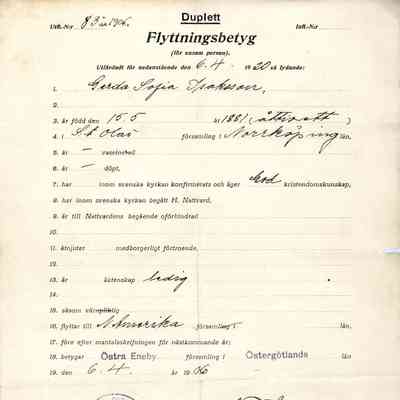 Duplett
Utfl.-N:r 8 Bil 1906. Infl.-N:r
Flyttningsbetyg
(för ensam person).
Utfärdadt för nedanstående den 6.4. 1920 så lydande:
1. Gerda Sofia Isaksson,
2.
3. är född den 15.5 år 1881 (åttioett)
4. i S:t Olai församling i Norrköping län,
5. är — vaccinerad
6. är — döpt,
7. har inom svenska kyrkan konfirmerats och äger god kristendomskunskap,
8. har inom svenska kyrkan begått H. Nattvard,
9. är till Nattvardens begående oförhindrad
10.
11. åtnjuter medborgerligt förtroende,
12.
13. är äktenskap ledig
14.
15. såsom värnpliktig
16. flyttar till N Amerika församling i län,
17. före efter mantalsskrifningen för nästkommande år;
18. betygar Östra Eneby församling i Östergötlands län
19. den 6.4. år 1906